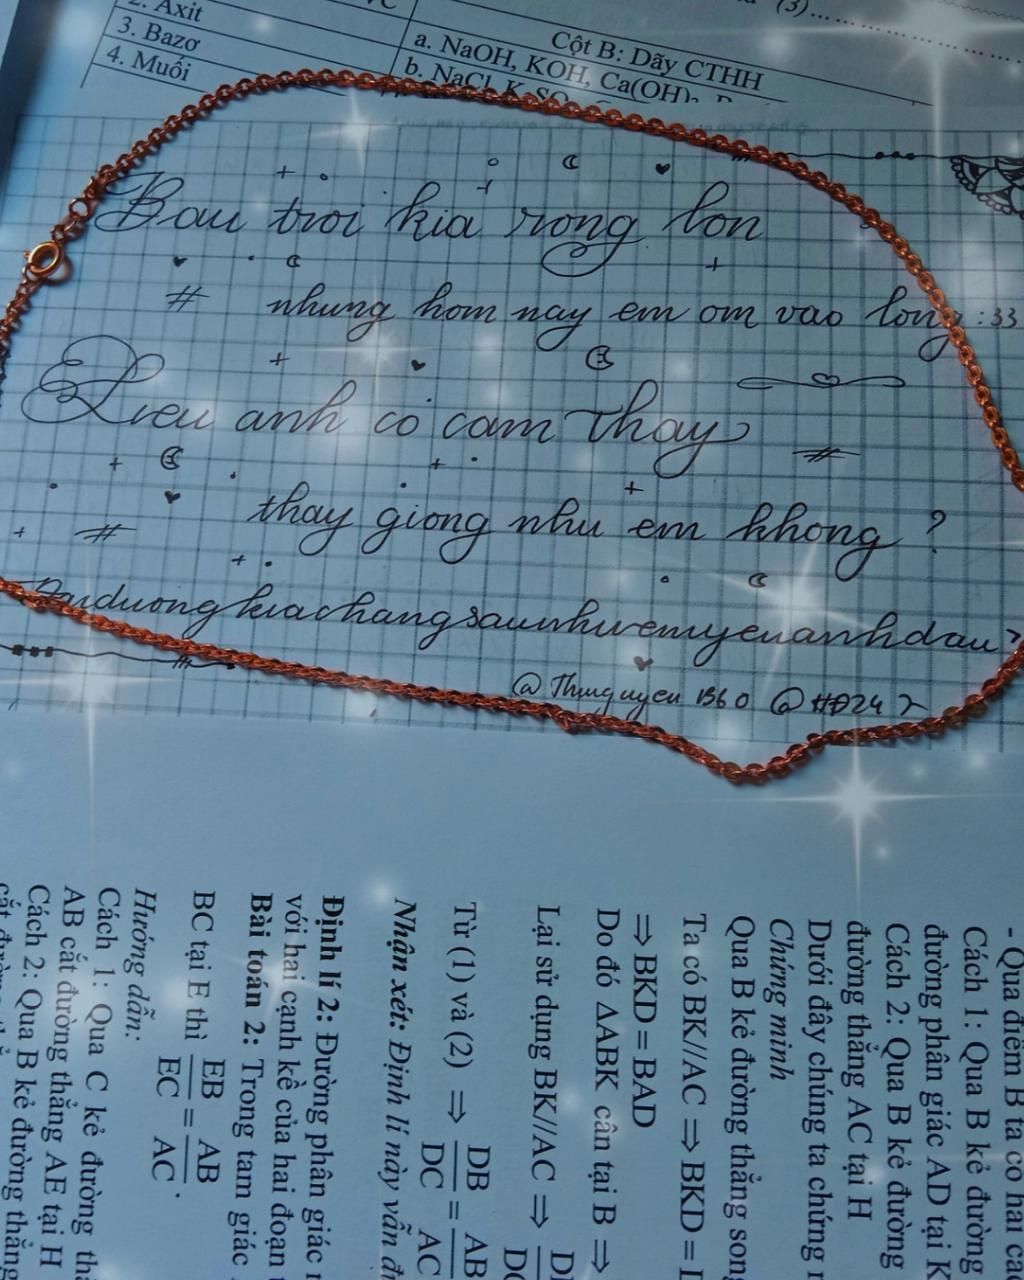 (3)...
2. Axit
3. Bazơ
4. Muối
Cột B: Dãy CTHH
a. NaOH, KOH, Ca(OH)₂
b. NaCl, K
Bau troi kia rong lon
nhung hom nay em om vao long :33
Lieu anh có cam thay
thay giong nhu em khong ?
Daiduongkiachangsaunhuemyeuanhdau?
@Thnguyen 1360 @HĐ24
- Qua điểm B ta có hai cá
Cách 1: Qua B kẻ đường
đường phân giác AD tại K
Cách 2: Qua B kẻ đường
đường thẳng AC tại H
Dưới đây chúng ta chứng
Chứng minh
Qua B kẻ đường thẳng song
Ta có BK//AC ⇒ BKD =
⇒ BKD = BAD
Do đó ΔABK cân tại B ⇒
Lại sử dụng BK//AC ⇒
Từ (1) và (2) ⇒ DB/DC = AB/AC
Nhận xét: Định lí này vẫn
Định lí 2: Đường phân giác
với hai cạnh kề của hai đoạn
Bài toán 2: Trong tam giác
BC tại E thì EB/EC = AB/AC.
Hướng dẫn:
Cách 1: Qua C kẻ đường
AB cắt đường thẳng AE tại H
Cách 2: Qua B kẻ đường thẳng